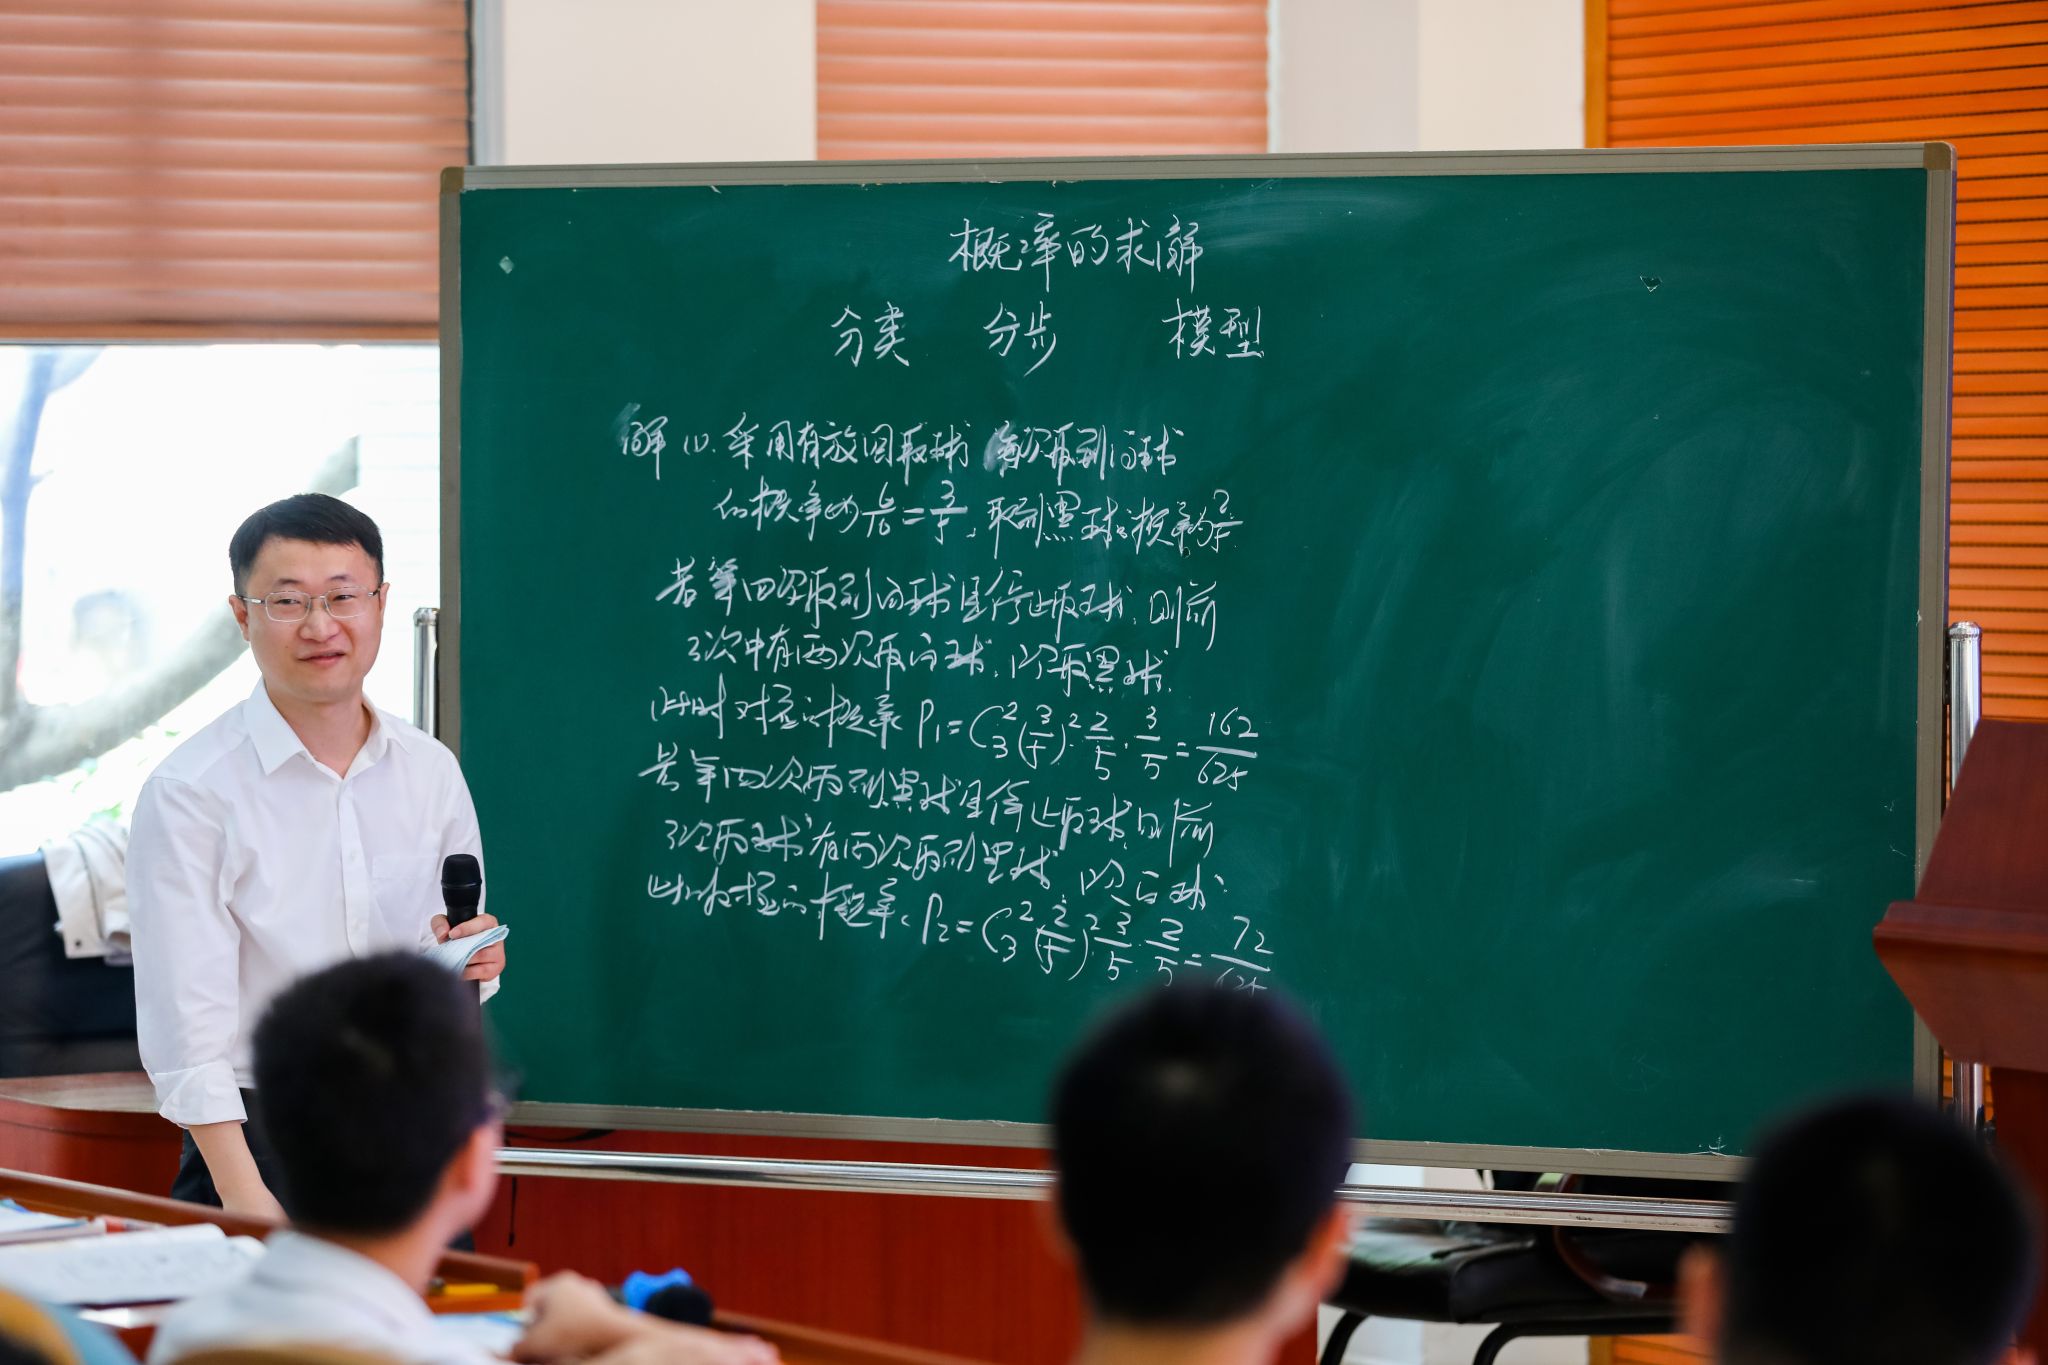 概率的求解
分类 分步 模型
解 (1). 采用有放回取球 每次取到白球
的概率为6/10=3/5, 取到黑球的概率为2/5.
若第四次取到白球且停止取球, 则前
3次中有两次取白球, 1次取黑球.
此时对应的概率 P₁=C₃²(3/5)²·2/5·3/5=162/625
若第四次取到黑球且停止取球, 则前
3次取球有两次取到黑球, 1次白球.
此时对应的概率 P₂=C₃²(2/5)²·3/5·2/5=72/625